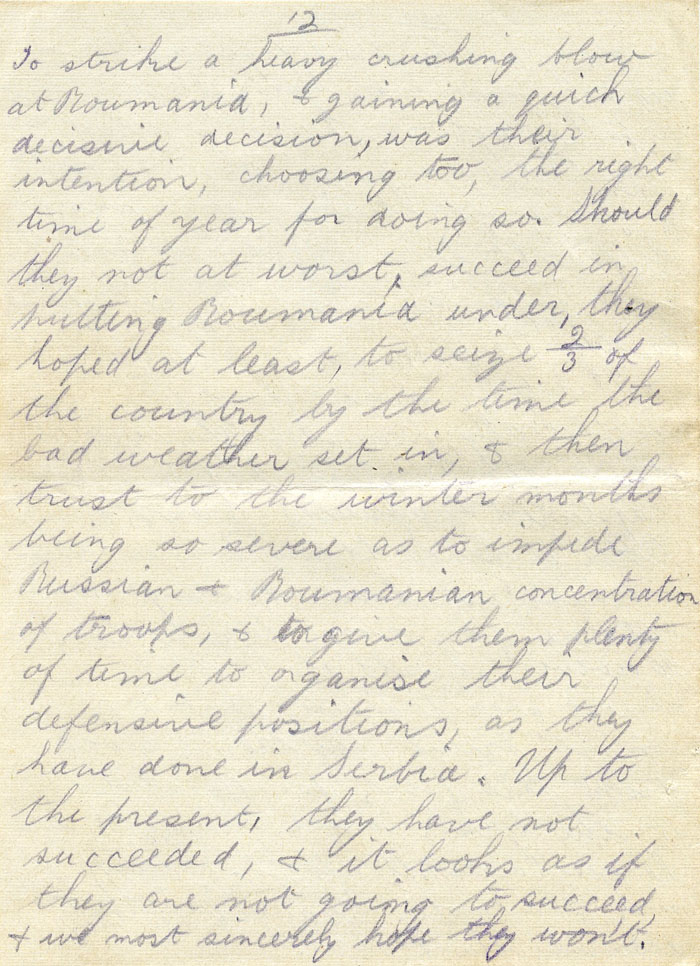 12
To strike a heavy crushing blow
at Roumania, & gaining a quick
decisive decision, was their
intention, choosing too, the right
time of year for doing so. Should
they not at worst, succeed in
putting Roumania under, they
hoped at least, to seize 2/3 of
the country by the time the
bad weather set in, & then
trust to the winter months
being so severe as to impede
Russian & Roumanian concentration
of troops, & to give them plenty
of time to organise their
defensive positions, as they
have done in Serbia. Up to
the present, they have not
succeeded, & it looks as if
they are not going to succeed,
& we most sincerely hope they won't.